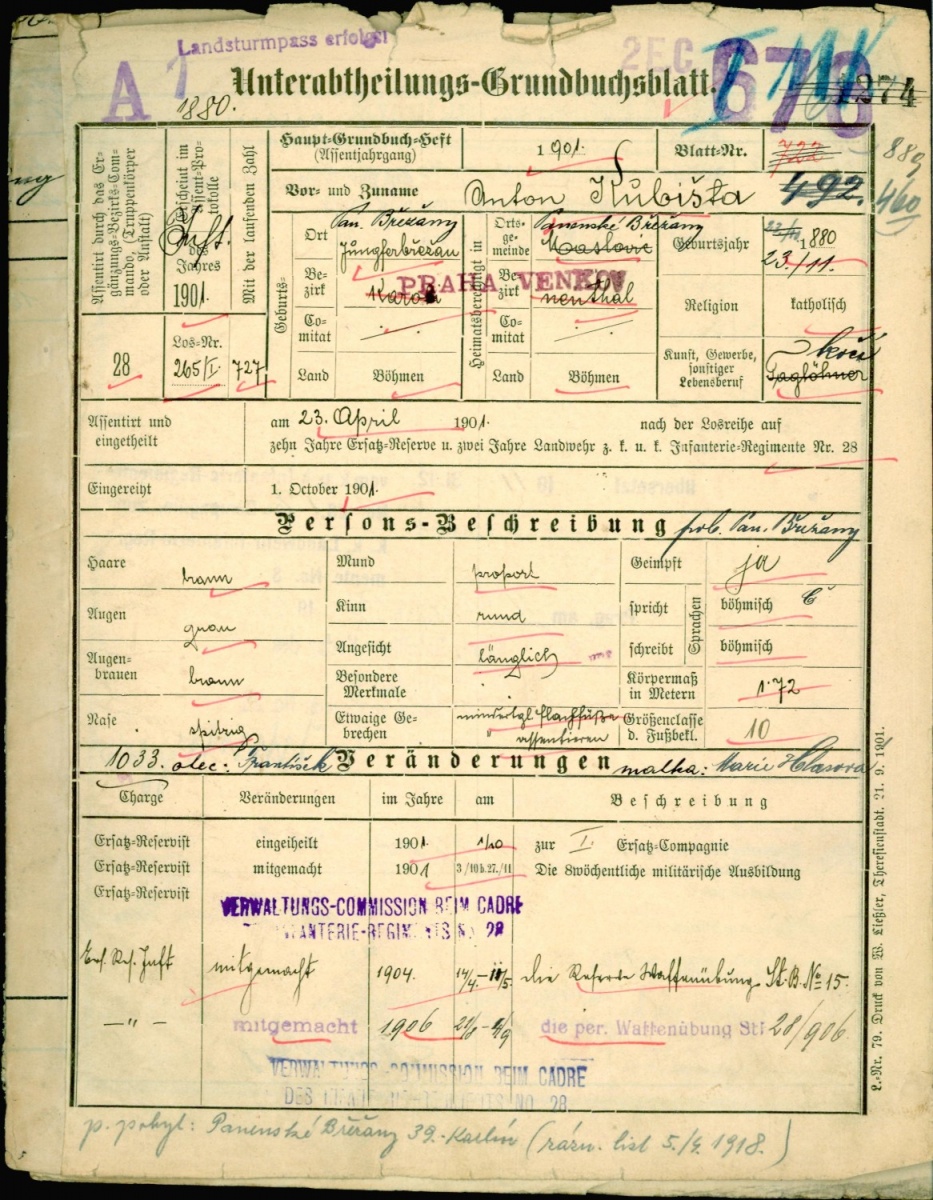 Landsturmpass erfolgt
A 1
1880.
2EC
678
Unterabtheilungs-Grundbuchsblatt.
1274
889
460
Assentirt durch das Er-
gänzungs-Bezirks-Com-
mando, (Truppenkörper
oder Anstalt)
Erscheint im
Assent-Pro-
tokolle
des
Jahres
1901.
Mit der laufenden Zahl
28
Los-Nr.
265/I.
727
Haupt-Grundbuch-Heft
(Assentjahrgang)
1901.
Blatt-Nr.
722
492.
Vor- und Zuname
Anton Kubišta
Geburts-
Ort
Pan. Břežany
Jungferbřežan
Bezirk
Karol
Comitat
Land
Böhmen
Heimatsberechtigt in
Orts-
ge-
meinde
Panenské Břežany
Be-
zirk
PRAHA VENKOV
Co-
mitat
Land
Böhmen
Geburtsjahr
1880
23./11.
Religion
katholisch
Kunst, Gewerbe,
sonstiger
Lebensberuf
kočí
Taglöhner
Assentirt und
eingetheilt
am 23. April 1901. nach der Losreihe auf
zehn Jahre Ersatz-Reserve u. zwei Jahre Landwehr z. k. u. k. Infanterie-Regimente Nr. 28
Eingereiht
1. October 1901.
Persons-Beschreibung
Pan. Břežany
Haare braun
Augen grau
Augen-
brauen braun
Nase spitzig
Mund proport
Kinn rund
Angesicht länglich
Besondere
Merkmale
Etwaige Ge-
brechen
mindertgl. Plachfüße
assentieren
Geimpft ja
Sprachen
spricht böhmisch č
schreibt böhmisch
Körpermaß
in Metern 1·72
Größenclasse
d. Fußbekl. 10
1033. otec: František Veränderungen matka: Marie Hlasová
Charge Veränderungen im Jahre am Beschreibung
Ersatz-Reservist eingetheilt 1901. 1/10 zur I. Ersatz-Compagnie
Ersatz-Reservist mitgemacht 1901 3/10 b. 27./11 Die 8wöchentliche militärische Ausbildung
Ersatz-Reservist
VERWALTUNGS-COMMISSION BEIM CADRE
INFANTERIE-REGIMENTS No 28
Ers. Res. Inft mitgemacht 1904. 14/4.–11/5. die Reserve Waffenübung St. B. No 15.
—„— mitgemacht 1906 die per. Waffenübung StB 28/906
VERWALTUNGS-COMMISSION BEIM CADRE
DES INFANTERIE-REGIMENTS NO. 28
p. pobyt: Panenské Břežany 39.-Karlín (rázn. list 5./9. 1918.)
L.-Nr. 79. Druck von W. Ließler, Theresienstadt. 21. 9. 1901.